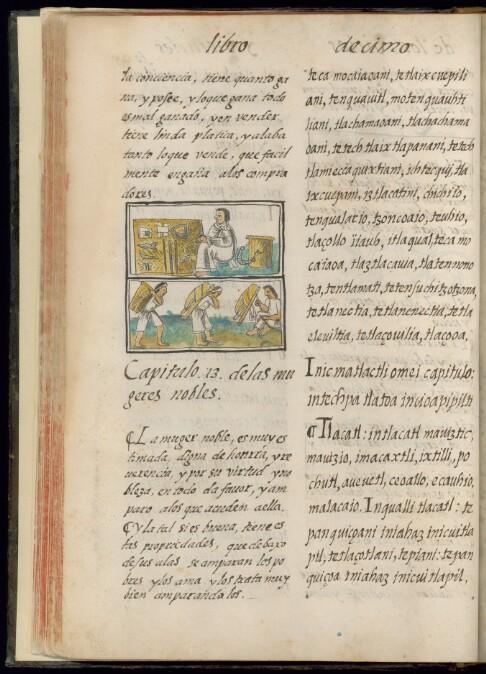 libro decimo
la conciencia, tiene quanto ga
na, y posee, y lo que gana todo
es mal ganado, y en vender
tiene linda platica, y alaba
tanto lo que vende, que facil
mente engaña alos compra
dores.
Capitulo .13. de las mu
geres nobles.
La muger noble, es muy es
timada, digna de honrra, y re
uerencia, y por su virtud y no
bleza, en todo da fauor, y am
paro alos que acuden aella.
Y la tal si es buena, tiene es
tas propriedades, que debaxo
de sus alas se amparan los po
bres y los ama y los trata muy
bien amparandolos.
teca mocaiaoani, tetlaixcuepili
ani, tenquauitl, motenquauhti
liani, tlachamaoani, tlachachama
oani, tetech tlaix tlapanani, tetech
tlamieccaquixtiani, ichtecqui, tla
ixcuepani, itztlacatini, chichilo,
tenqualacio, tzoncoaio, teuhio,
tlaçollo iiauh, itlaqual, teca mo
caiaoa, tlaztlacauia, tlatennono
tza, tentlamati, tetensuchitzotzona,
tetlanectia, tetlanenectia, tetla
eleuiltia, tetlaçouilia, tlacooa.
Inic matlactli omei capitulo:
intechpa tlatoa incioapipilti
Tlacatl: in tlacatl mauiztic,
mauizio, imacaxtli, ixtilli, po
chutl, aueuetl, ceoallo, ecauhio,
malacaio. In qualli tlacatl: te
panquiçani iniahaz inicuitla
pil, tetlaçotlani, tepiani: tepan
quiçoa iniahaz inicuitlapil,